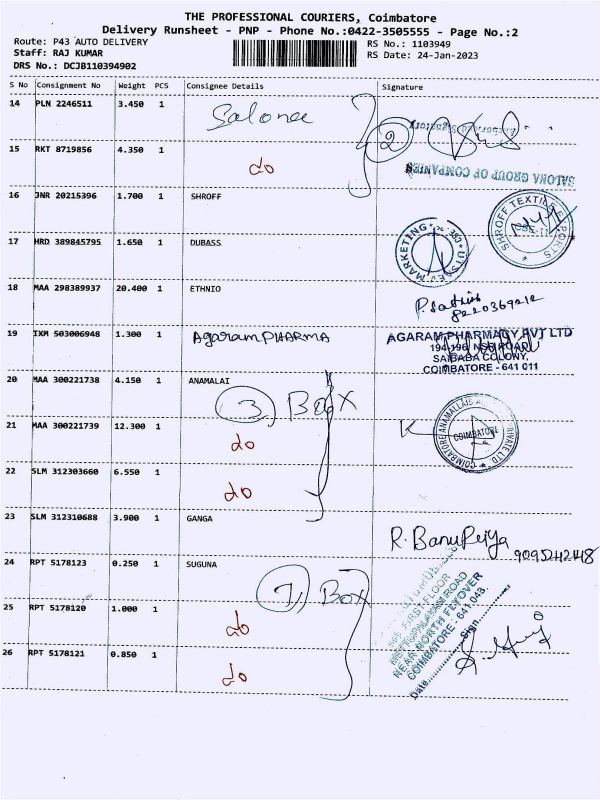 THE PROFESSIONAL COURIERS, Coimbatore
Delivery Runsheet - PNP - Phone No.:0422-3505555 - Page No.:2
Route: P43 AUTO DELIVERY RS No.: 1103949
Staff: RAJ KUMAR RS Date: 24-Jan-2023
DRS No.: DCJB110394902
S No Consignment No Weight PCS Consignee Details Signature
14 PLN 2246511 3.450 1 Salonee
2
15 RKT 8719856 4.350 1 do
SALONA GROUP OF COMPANIES
16 JNR 20215396 1.700 1 SHROFF
SHROFF TEXTILE
17 HRD 389845795 1.650 1 DUBASS
MARKETING
18 MAA 298389937 20.400 1 ETHNIO
19 IXM 503006948 1.300 1 Agaram PHARMA
AGARAM PHARMACY PVT LTD
194-196, NSR ROAD,
SAIBABA COLONY,
COIMBATORE - 641 011
20 MAA 300221738 4.150 1 ANAMALAI
3, Box
21 MAA 300221739 12.300 1 do
COIMBATORE
22 SLM 312303660 6.550 1 do
23 SLM 312310688 3.900 1 GANGA
R. BanuPriya
24 RPT 5178123 0.250 1 SUGUNA
Box
25 RPT 5178120 1.000 1 do
FIRST FLOOR
METTUPALAYAM ROAD
NEAR NORTH FLYOVER
COIMBATORE - 641 043.
Date Sign
26 RPT 5178121 0.850 1 do